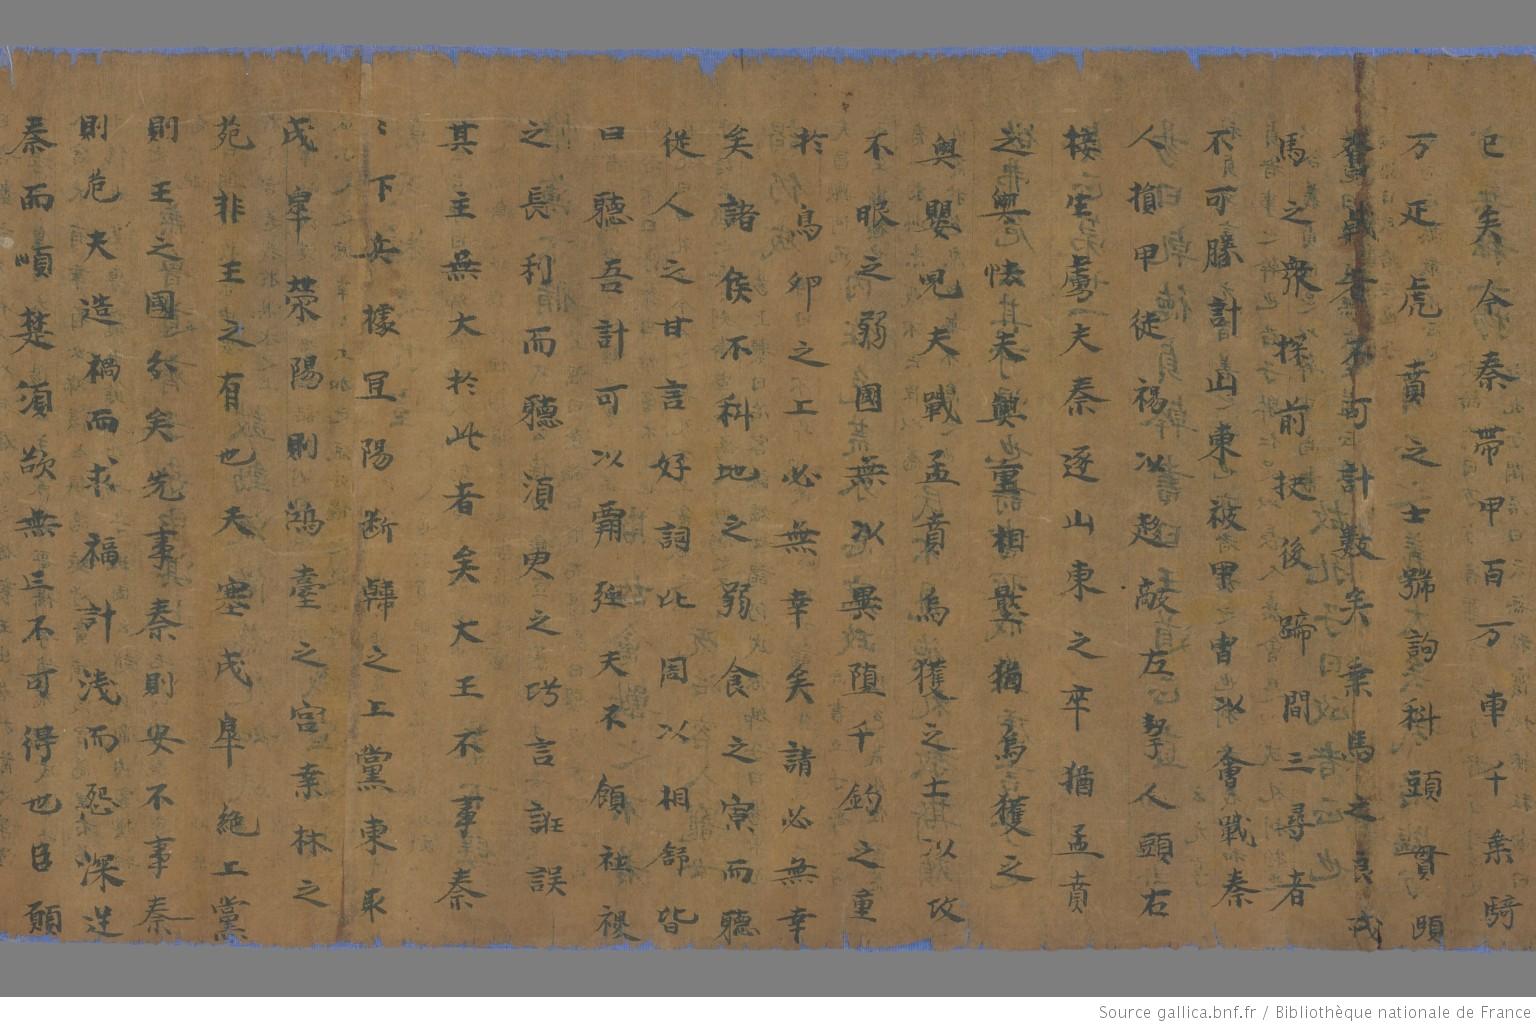 已矣今秦帶甲百万車千乘騎
万疋虎賁之士號訽科頭貫頤
奮戟者不可計數矣乘馬之良戎
馬之衆探前抉後蹄間三尋者
不可勝計山東被甲胄以會戰秦
人捐甲徒裼以趍敵左挈人頭右
接生虜夫秦逐山東之卒猶孟賁
之與怯夫輿重相壓猶烏獲之
與嬰兒夫戰孟賁烏獲之士以攻
不服之弱國無以異墮千鈞之重
於鳥卵之上必無幸矣請必無幸
矣諸侯不料地之弱食之寡而聽
從人之甘言好詞比周以相飾皆
曰聽吾計可以霸强天不顧社稷
之長利而聽湏臾之巧言詿誤
其主無大於此者矣大王不事秦
〻下兵據宜陽斷韓之上黨東取
成皐滎陽則鴻臺之宮桒林之
苑非王之有也夫塞成皐絶上黨
則王之國分矣先事秦則安不事秦
則危夫造禍而求福計淺而怨深逆
秦而順楚湏欲無亡不可得也臣願
Source gallica.bnf.fr / Bibliothèque nationale de France